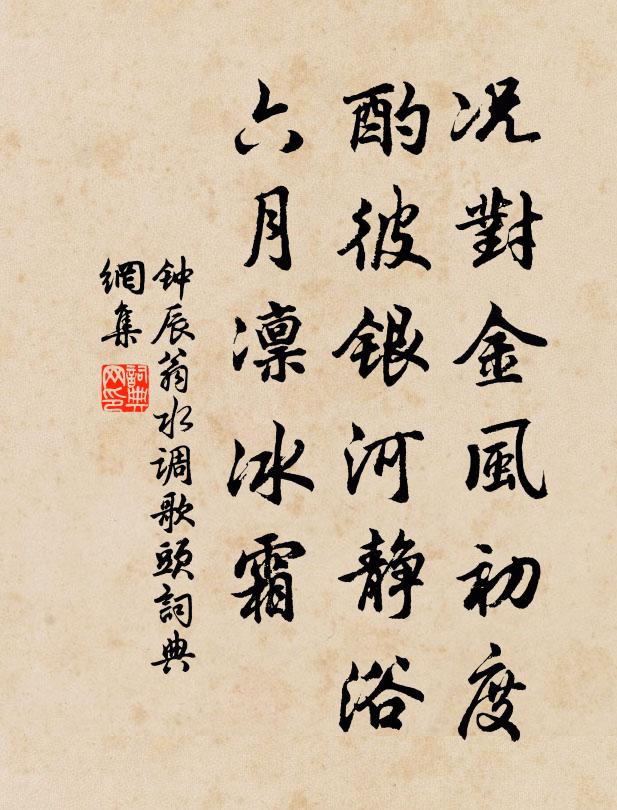 况對金風初度
酌彼銀河静浴
六月凛冰霜
钟辰翁水调歌頭詞典
網集
詞典网印